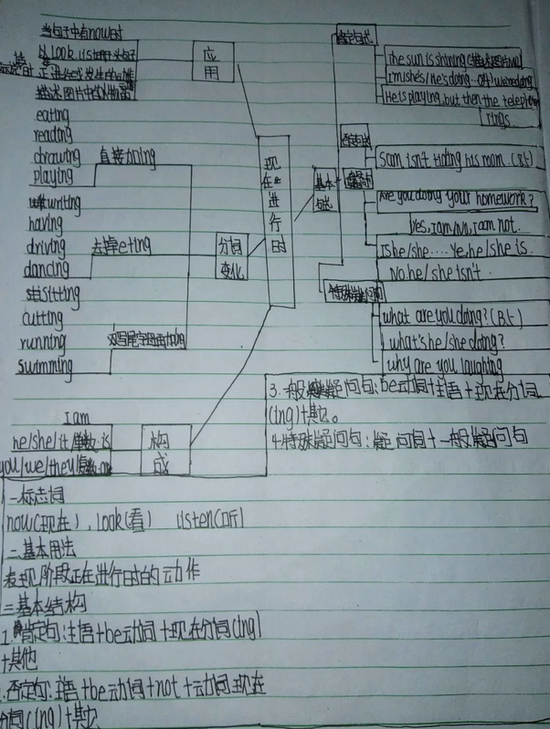 当句子中有now时
以look, listen开头句子
正进行或发生的动作
描述图片中的人物
应用
eating
reading
drawing
playing
直接加ing
writing
having
driving
dancing
去掉e+ing
sitting
cutting
running
swimming
双写尾字母再加ing
分词变化
现在进行时
I am
he/she/it/单数 is
you/we/they/复数 are
构成
基本句式
肯定句式
The sun is shining
He is playing, but then the telephone
rings
否定句
Sam isn't riding his mom. (B5)
Are you doing your homework?
Yes, I am/No, I am not.
Is he/she.... Ye, he/she is.
No he/she isn't.
特殊疑问句
what are you doing? (B5)
what's he/she doing?
why are you laughing
3. 一般疑问句: be动词+主语+现在分词
(ing)+其它。
4. 特殊疑问句: 疑问词+一般疑问句
一标志词
now(现在), look(看) listen(听)
二基本用法
表现阶段正在进行时的动作
三基本结构
1. 肯定句:主语+be动词+现在分词(ing)
+其他
2. 否定句:主语+be动词+not+动词现在
分词(ing)+其它